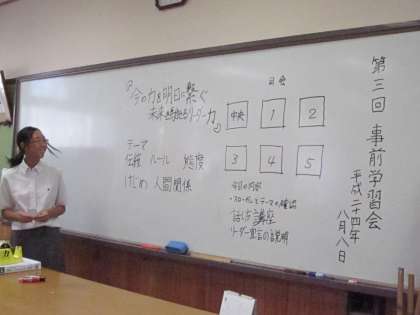 第三回 事前学習会
平成二十四年
八月八日
司会
中央
1
2
3
4
5
「今の力を明日に繋ぐ
リーダー力」
テーマ
伝統 ルール 態度
けじめ 人間関係
今日の内容
・スローガンとテーマの確認
・話し方講座
・リーダー宣言の説明